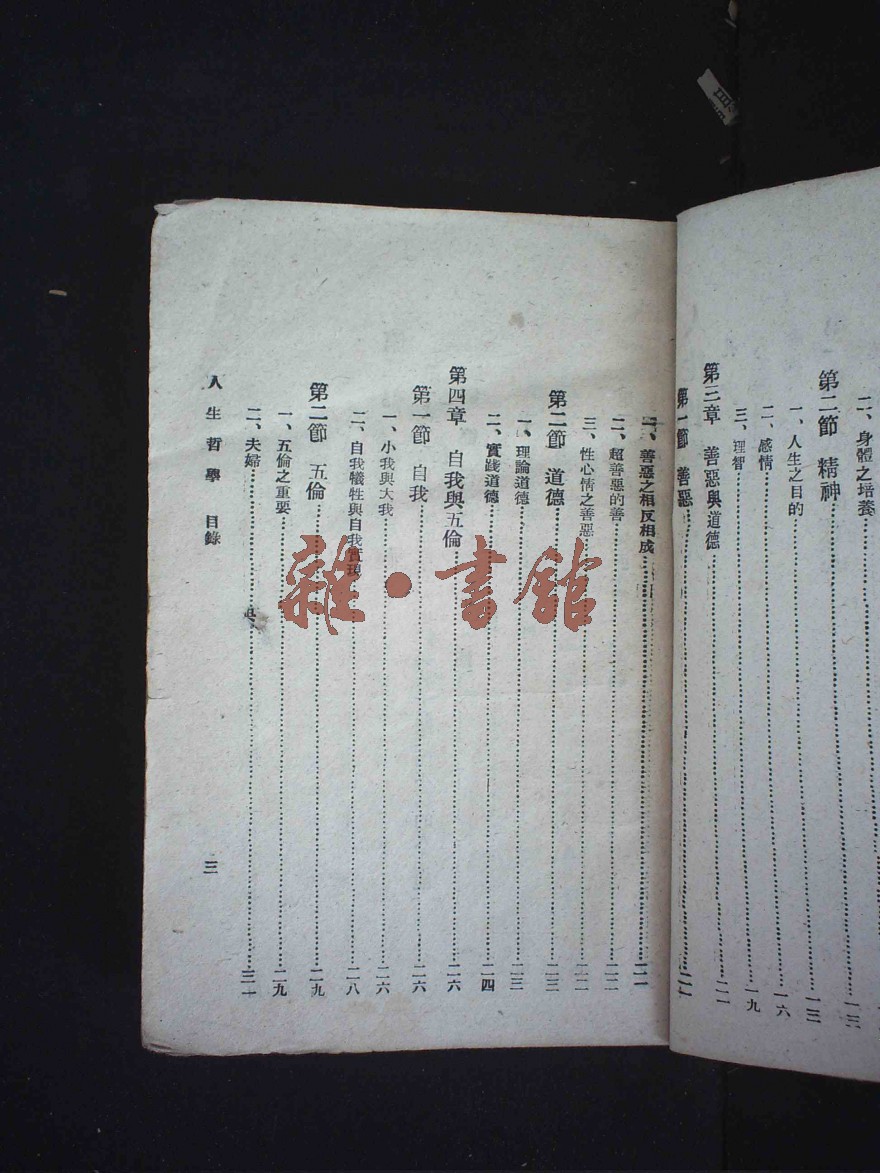 二、身體之培養……一三
第二節 精神……一三
一、人生之目的……一六
二、感情
三、理智……一九
第三章 善惡與道德……二一
第一節 善惡……二一
一、善惡之相反相成……二一
二、超善惡的善……二二
三、性心情之善惡……二二
第二節 道德……二三
一、理論道德……二三
二、實踐道德……二四
第四章 自我與五倫……二六
第一節 自我……二六
一、小我與大我……二六
二、自我犧牲與自我實現……二八
第二節 五倫……二九
一、五倫之重要……二九
二、夫婦……三一
人生哲學 目錄
三
雜·書館